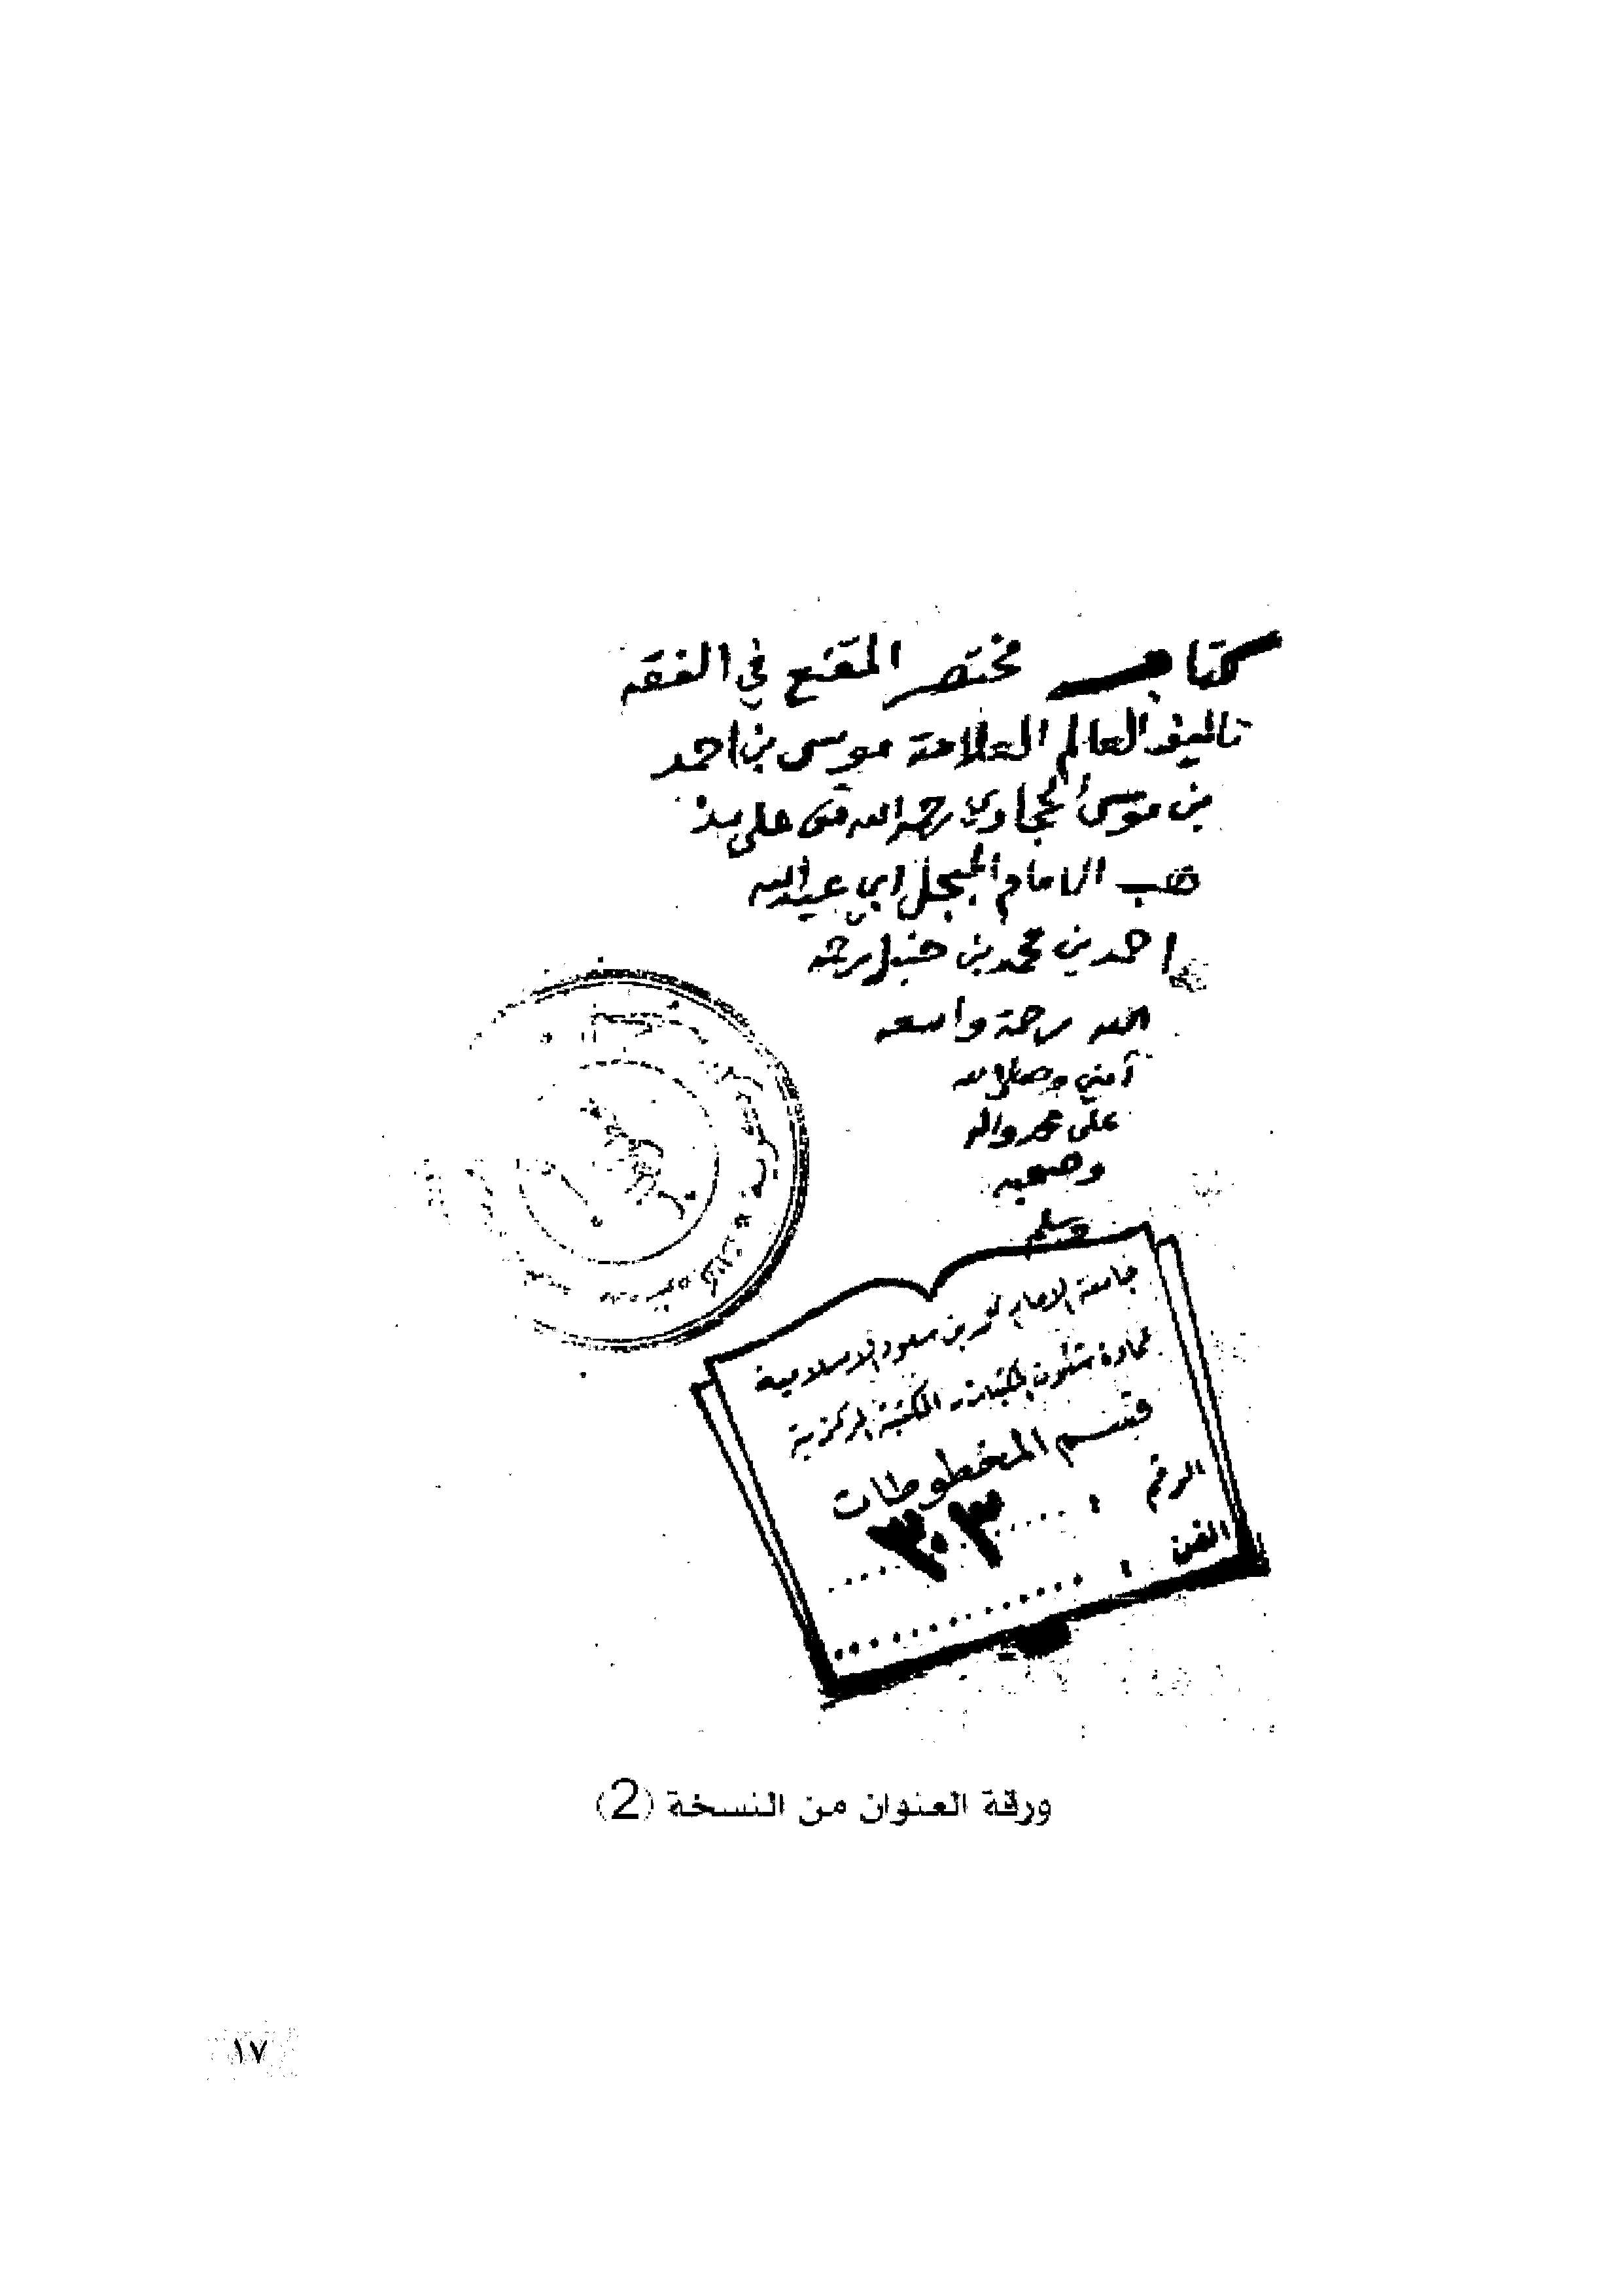 كتاب مختصر المقنع في الفقه
تاليف العالم العلامة موسى بن احمد
بن موسى الحجاوي رحمه الله على مذ
هب الامام المبجل ابي عبد الله
احمد بن محمد بن حنبل رحمه
الله رحمة واسعه
آمين وصلى الله
على محمد واله
وصحبه
وسلم
جامعة الامام محمد بن سعود الاسلامية
عمادة شئون المكتبات - المكتبة المركزية
قسم المخطوطات
الرقم : ٣٠٣
الفن :
ورقة العنوان من النسخة (2)
١٧